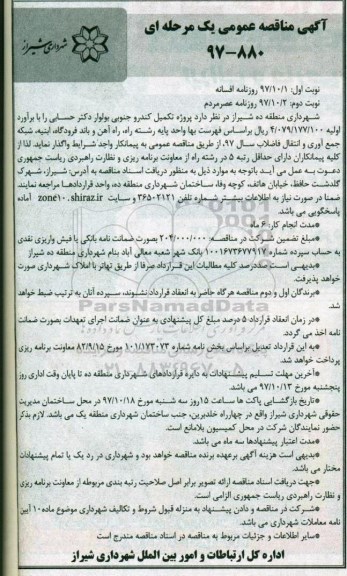 آگهی مناقصه عمومی یک مرحله ای
۹۷-۸۸۰
شهرداری شیراز
نوبت اول: ۹۷/۱۰/۱ روزنامه افسانه
نوبت دوم: ۹۷/۱۰/۲ روزنامه عصرمردم
شهرداری منطقه ده شیراز در نظر دارد پروژه تکمیل کندرو جنوبی بولوار دکتر حسابی را با برآورد
اولیه ۴/۰۷۹/۱۷۷/۱۰۰ ریال براساس فهرست بها واحد پایه رشته راه، راه آهن و باند فرودگاه، ابنیه، شبکه
جمع آوری و انتقال فاضلاب سال ۹۷، از طریق مناقصه عمومی به پیمانکار واجد شرایط واگذار نماید. لذا از
کلیه پیمانکاران دارای حداقل رتبه ۵ در رشته راه از معاونت برنامه ریزی و نظارت راهبردی ریاست جمهوری
دعوت به عمل می آید باتوجه به موارد ذیل به منظور دریافت اسناد مناقصه به آدرس: شیراز، شهرک
گلدشت حافظ، خیابان هاتف، کوچه وفا، ساختمان شهرداری منطقه ده، واحد قراردادها مراجعه نمایند.
ضمنا در صورت نیاز به اطلاعات بیشتر شماره تلفن ۳۶۵۰۲۱۳۱ و سایت zone۱۰.shiraz.ir آماده
پاسخگویی می باشد.
*مدت انجام کار: ۶ ماه
*مبلغ تضمین شرکت در مناقصه: ۲۰۴/۰۰۰/۰۰۰ بصورت ضمانت نامه بانکی یا فیش واریزی نقدی
به حساب سپرده شماره ۱۰۰۱۶۷۳۶۷۷۹۱۷ بانک شهر شعبه معالی آباد بنام شهرداری منطقه ده شیراز
*بدیهی است صددرصد کلیه مطالبات این قرارداد صرفا از طریق تهاتر با املاک شهرداری صورت
خواهد پذیرفت.
*برندگان اول و دوم مناقصه هرگاه حاضر به انعقاد قرارداد نشوند، سپرده آنان به ترتیب ضبط خواهد
شد.
*در زمان انعقاد قرارداد ۵ درصد مبلغ کل پیشنهادی به عنوان ضمانت اجرای تعهدات بصورت ضمانت
نامه اخذ می گردد.
*به این قرارداد تعدیل براساس بخش نامه شماره ۱۰۱/۱۷۳۰۷۳ مورخ ۸۲/۹/۱۵ معاونت برنامه ریزی
پرداخت خواهد شد.
*آخرین مهلت تسلیم پیشنهادات به دایره قراردادهای شهرداری منطقه ده تا پایان وقت اداری روز
پنجشنبه مورخ ۹۷/۱۰/۱۳ می باشد.
*تاریخ بازگشایی پاکت ها ساعت ۱۵ روز سه شنبه مورخ ۹۷/۱۰/۱۸ در محل ساختمان مدیریت
حقوقی شهرداری شیراز واقع در چهارراه خلدبرین، جنب ساختمان شهرداری منطقه یک می باشد. لازم بذکر
حضور نمایندگان شرکت در محل کمیسیون بلامانع است.
*مدت اعتبار پیشنهادها سه ماه می باشد.
*بدیهی است هزینه آگهی برعهده برنده مناقصه خواهد بود و شهرداری در رد یک یا تمام پیشنهادات
مختار می باشد.
*جهت دریافت اسناد مناقصه ارائه تصویر برابر اصل صلاحیت رتبه بندی مربوطه از معاونت برنامه ریزی
و نظارت راهبردی ریاست جمهوری الزامی است.
*شرکت در مناقصه و دادن پیشنهاد به منزله قبول شروط و تکالیف شهرداری موضوع ماده ۱۰ آیین
نامه معاملات شهرداری می باشد.
*سایر اطلاعات و جزئیات مربوط به مناقصه در اسناد مناقصه مندرج است
اداره کل ارتباطات و امور بین الملل شهرداری شیراز
ParsNamadData